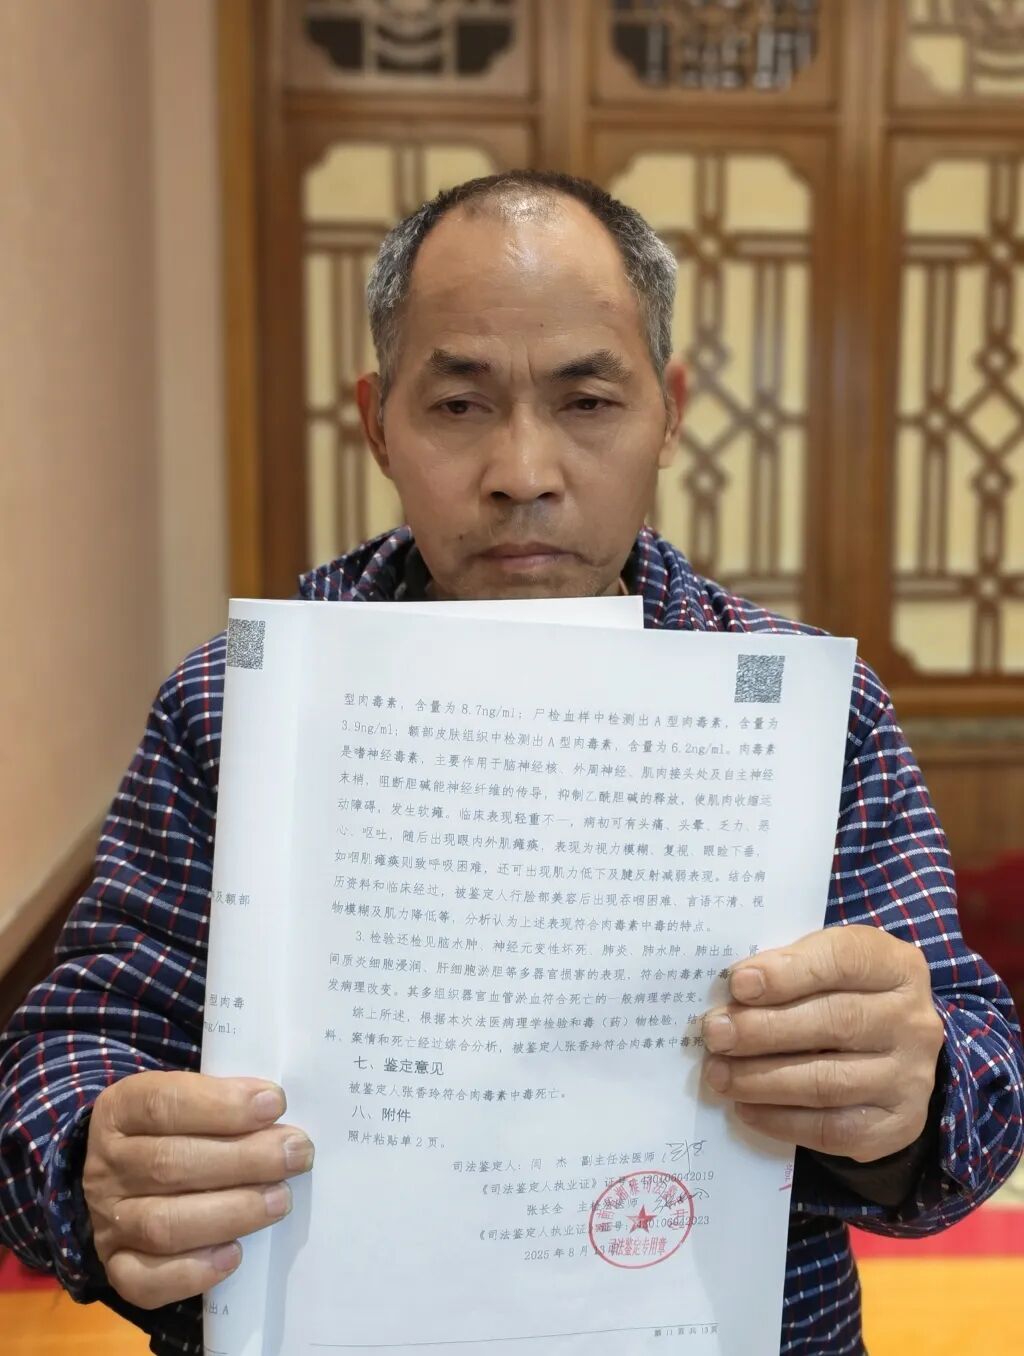 型肉毒素，含量为 8.7ng/ml；尸检血样中检测出 A 型肉毒素，含量为
3.9ng/ml；额部皮肤组织中检测出 A 型肉毒素，含量为 6.2ng/ml。肉毒素
是嗜神经毒素，主要作用于脑神经核、外周神经、肌肉接头处及自主神经
末梢，阻断胆碱能神经纤维的传导，抑制乙酰胆碱的释放，使肌肉收缩运
动障碍，发生软瘫。临床表现轻重不一，病初可有头痛、头晕、乏力、恶
心、呕吐，随后出现眼内外肌瘫痪，表现为视力模糊、复视、眼睑下垂，
如咽肌瘫痪则致呼吸困难，还可出现肌力低下及腱反射减弱表现。结合病
历资料和临床经过，被鉴定人行脸部美容后出现吞咽困难、言语不清、视
物模糊及肌力降低等，分析认为上述表现符合肉毒素中毒的特点。
3.检验还检见脑水肿、神经元变性坏死、肺炎、肺水肿、肺出血、肾
间质炎细胞浸润、肝细胞淤胆等多器官损害的表现，符合肉毒素中毒
发病理改变。其多组织器官血管淤血符合死亡的一般病理学改变。
综上所述，根据本次法医病理学检验和毒（药）物检验，结合
料、案情和死亡经过综合分析，被鉴定人张香玲符合肉毒素中毒死
七、鉴定意见
被鉴定人张香玲符合肉毒素中毒死亡。
八、附件
照片粘贴单 2 页。
司法鉴定人：闫 杰 副主任法医师
《司法鉴定人执业证》证号：430106042019
张长全 主检法医师
《司法鉴定人执业证》证号：430106042023
2025 年 8 月 13 日
司法鉴定专用章
第 11 页 共 13 页
及额部
型肉毒
ng/ml；
出 A